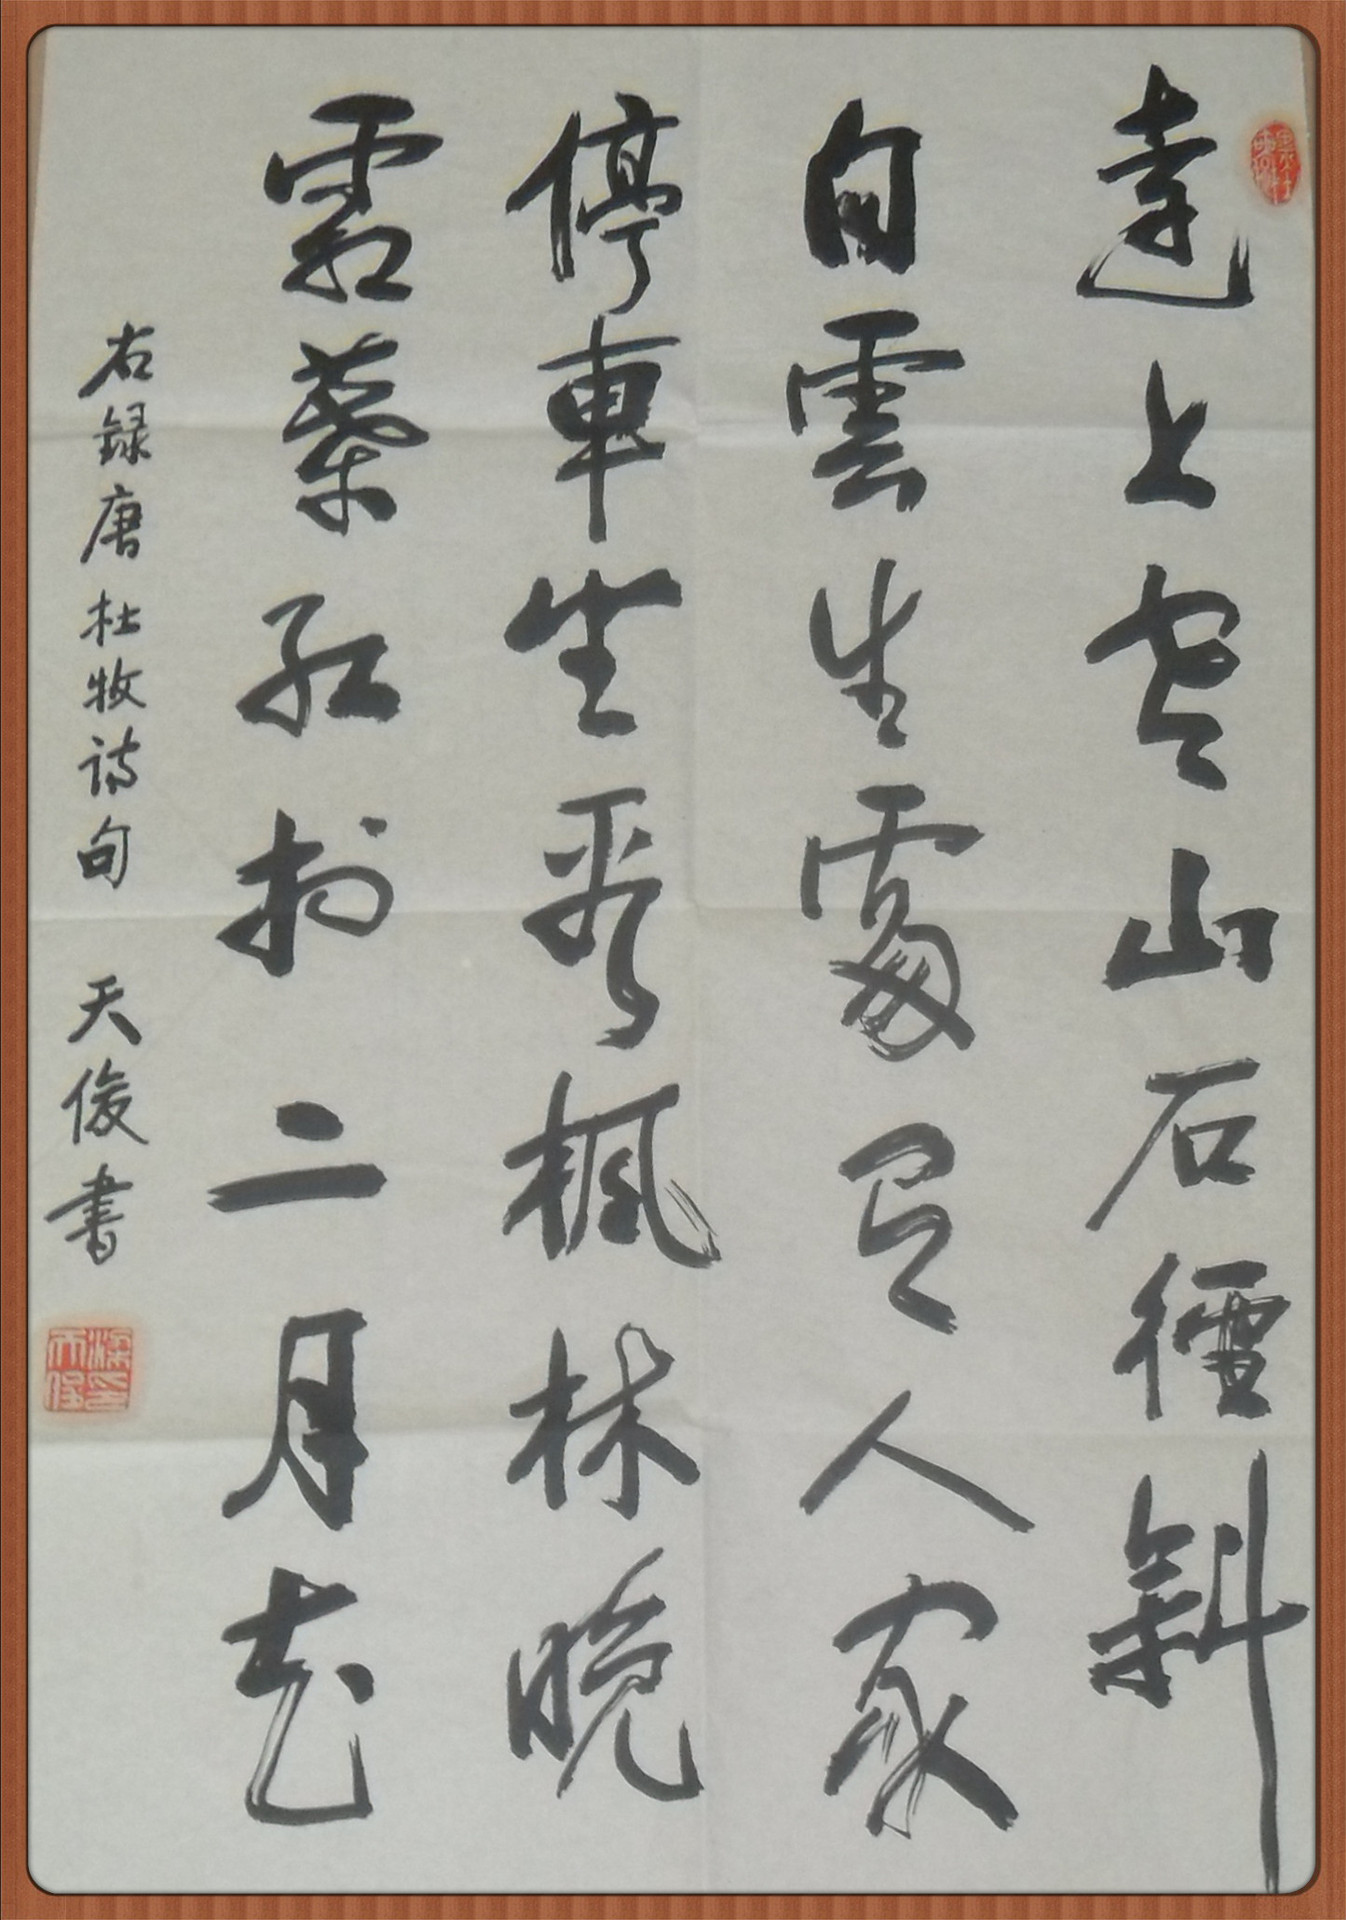 遠上寒山石徑斜
白雲生處有人家
停車坐愛楓林晚
霜葉紅於二月花
右録唐杜牧詩句 天俊書